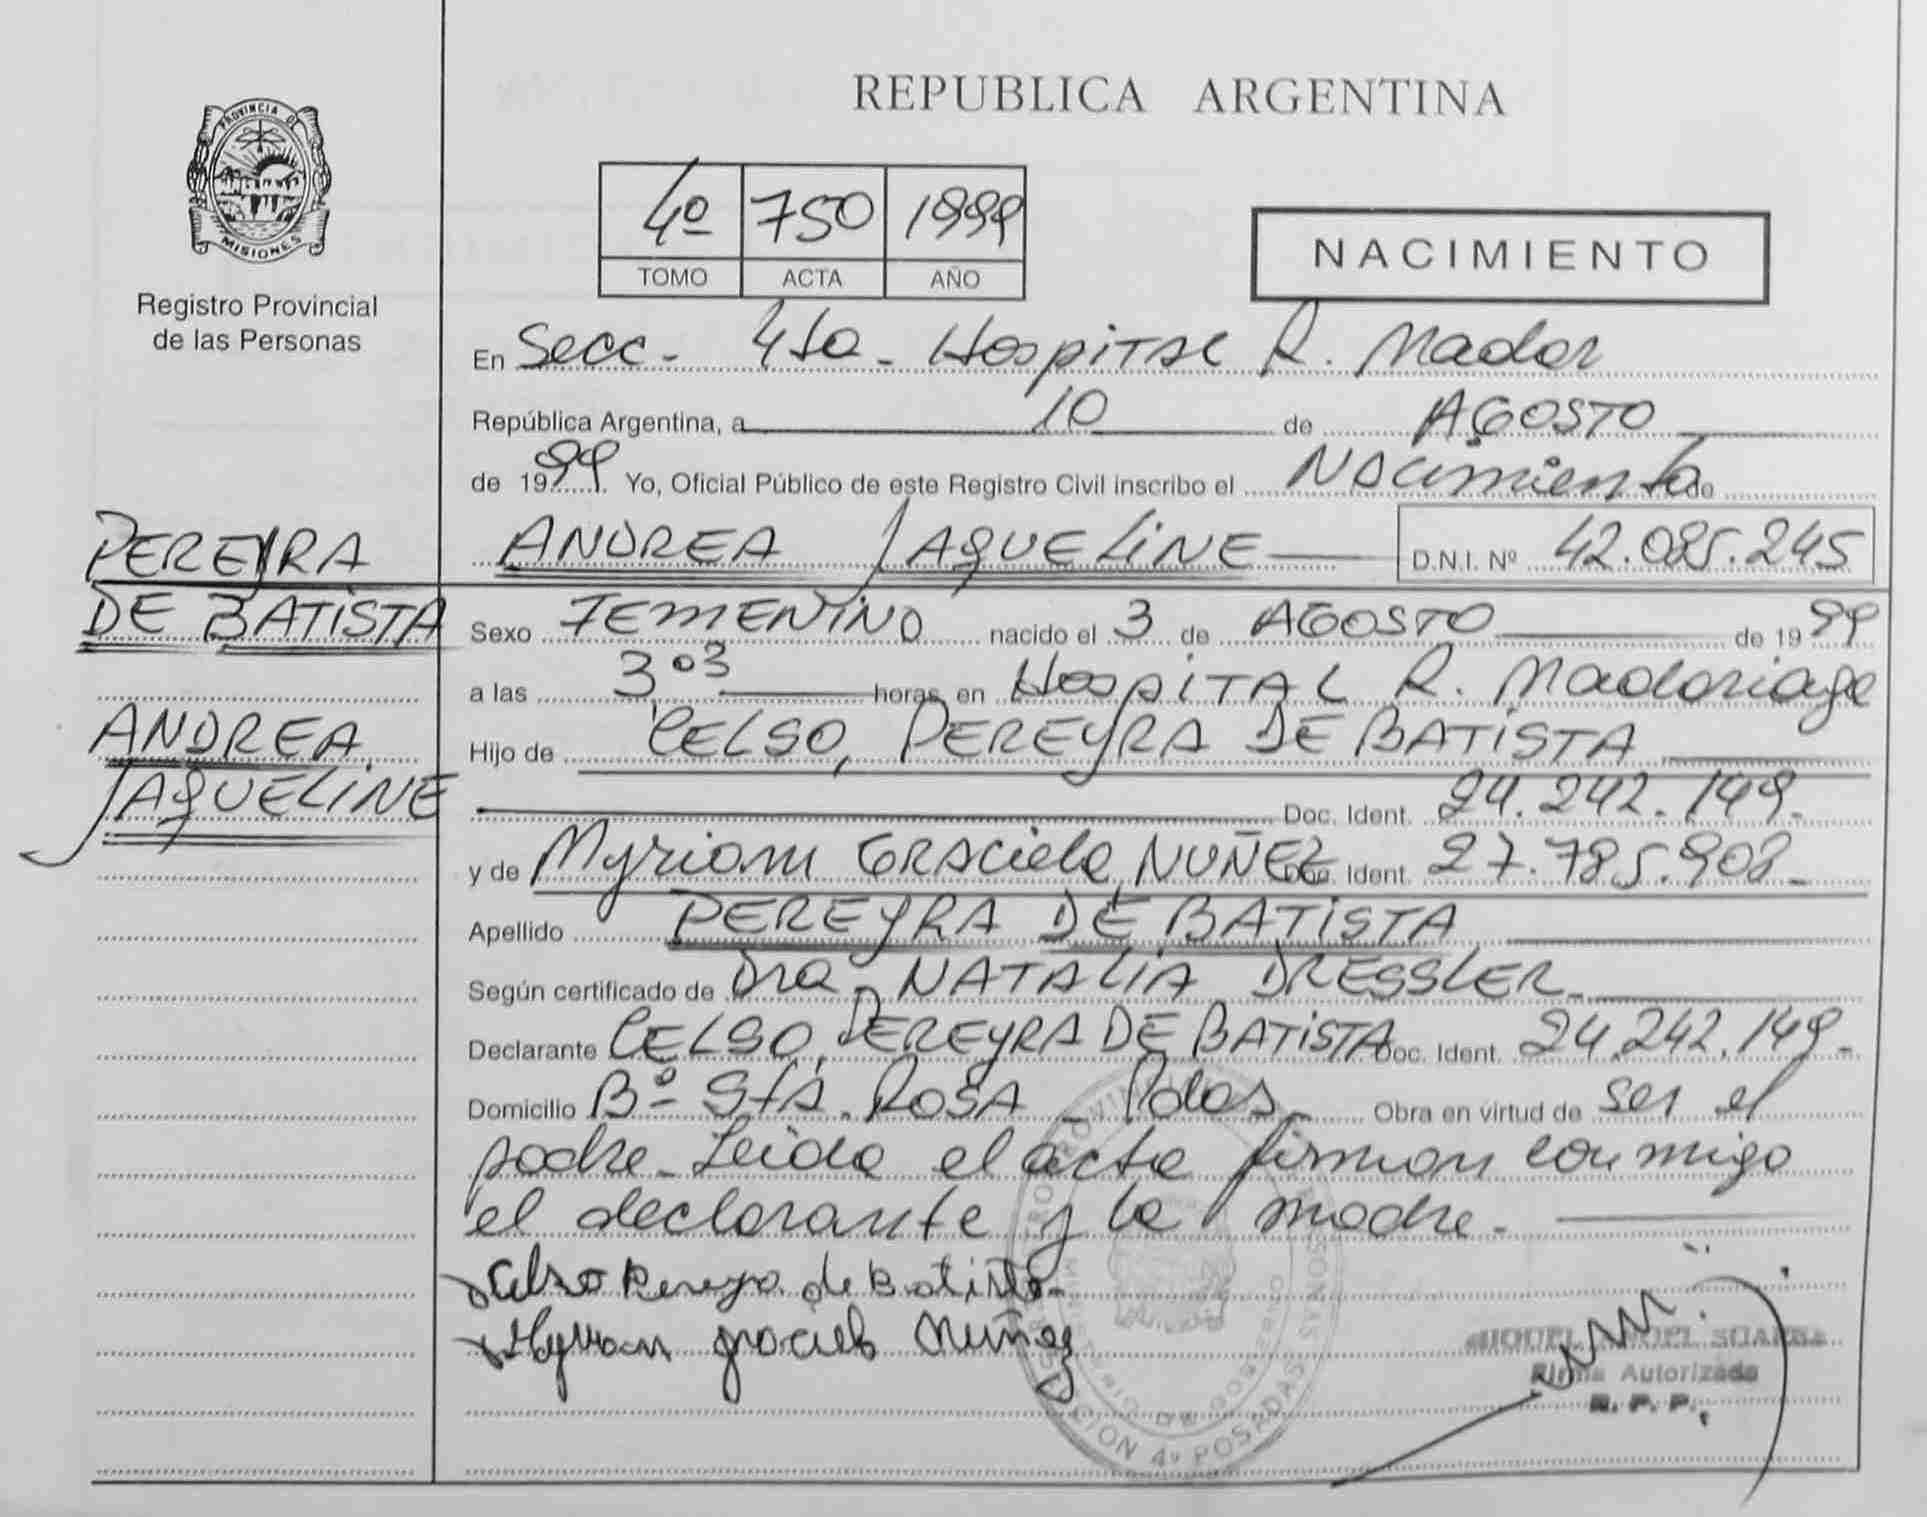 REPUBLICA ARGENTINA
PROVINCIA DE
MISIONES
Registro Provincial
de las Personas
4º 750 1999
TOMO ACTA AÑO
NACIMIENTO
En Secc. 4ta. Hospital R. Mador
República Argentina, a 10 de AGOSTO
de 1999 Yo, Oficial Público de este Registro Civil inscribo el Nacimiento de
PEREYRA
DE BATISTA
ANDREA
JAQUELINE
ANDREA JAQUELINE D.N.I. Nº 42.085.245
Sexo FEMENINO nacido el 3 de AGOSTO de 1999
a las 3º3 horas en Hospital R. Madariaga
Hijo de CELSO, PEREYRA DE BATISTA
Doc. Ident. 24.242.149.
y de Myriam GRACIELA NUÑEZ Doc. Ident. 27.785.908.
Apellido PEREYRA DE BATISTA
Según certificado de Dra. NATALIA DRESSLER.
Declarante CELSO, PEREYRA DE BATISTA Doc. Ident. 24.242.149.
Domicilio Bº STA. ROSA - Pdas. Obra en virtud de ser el
padre. Leida el acta firman conmigo
el declarante y la madre.
Celso Pereyra de Batista
Myrian graciela Nuñez
Firma Autorizada
R. P. P.
SECCION 4º POSADAS
MINISTERIO DE GOBIERNO